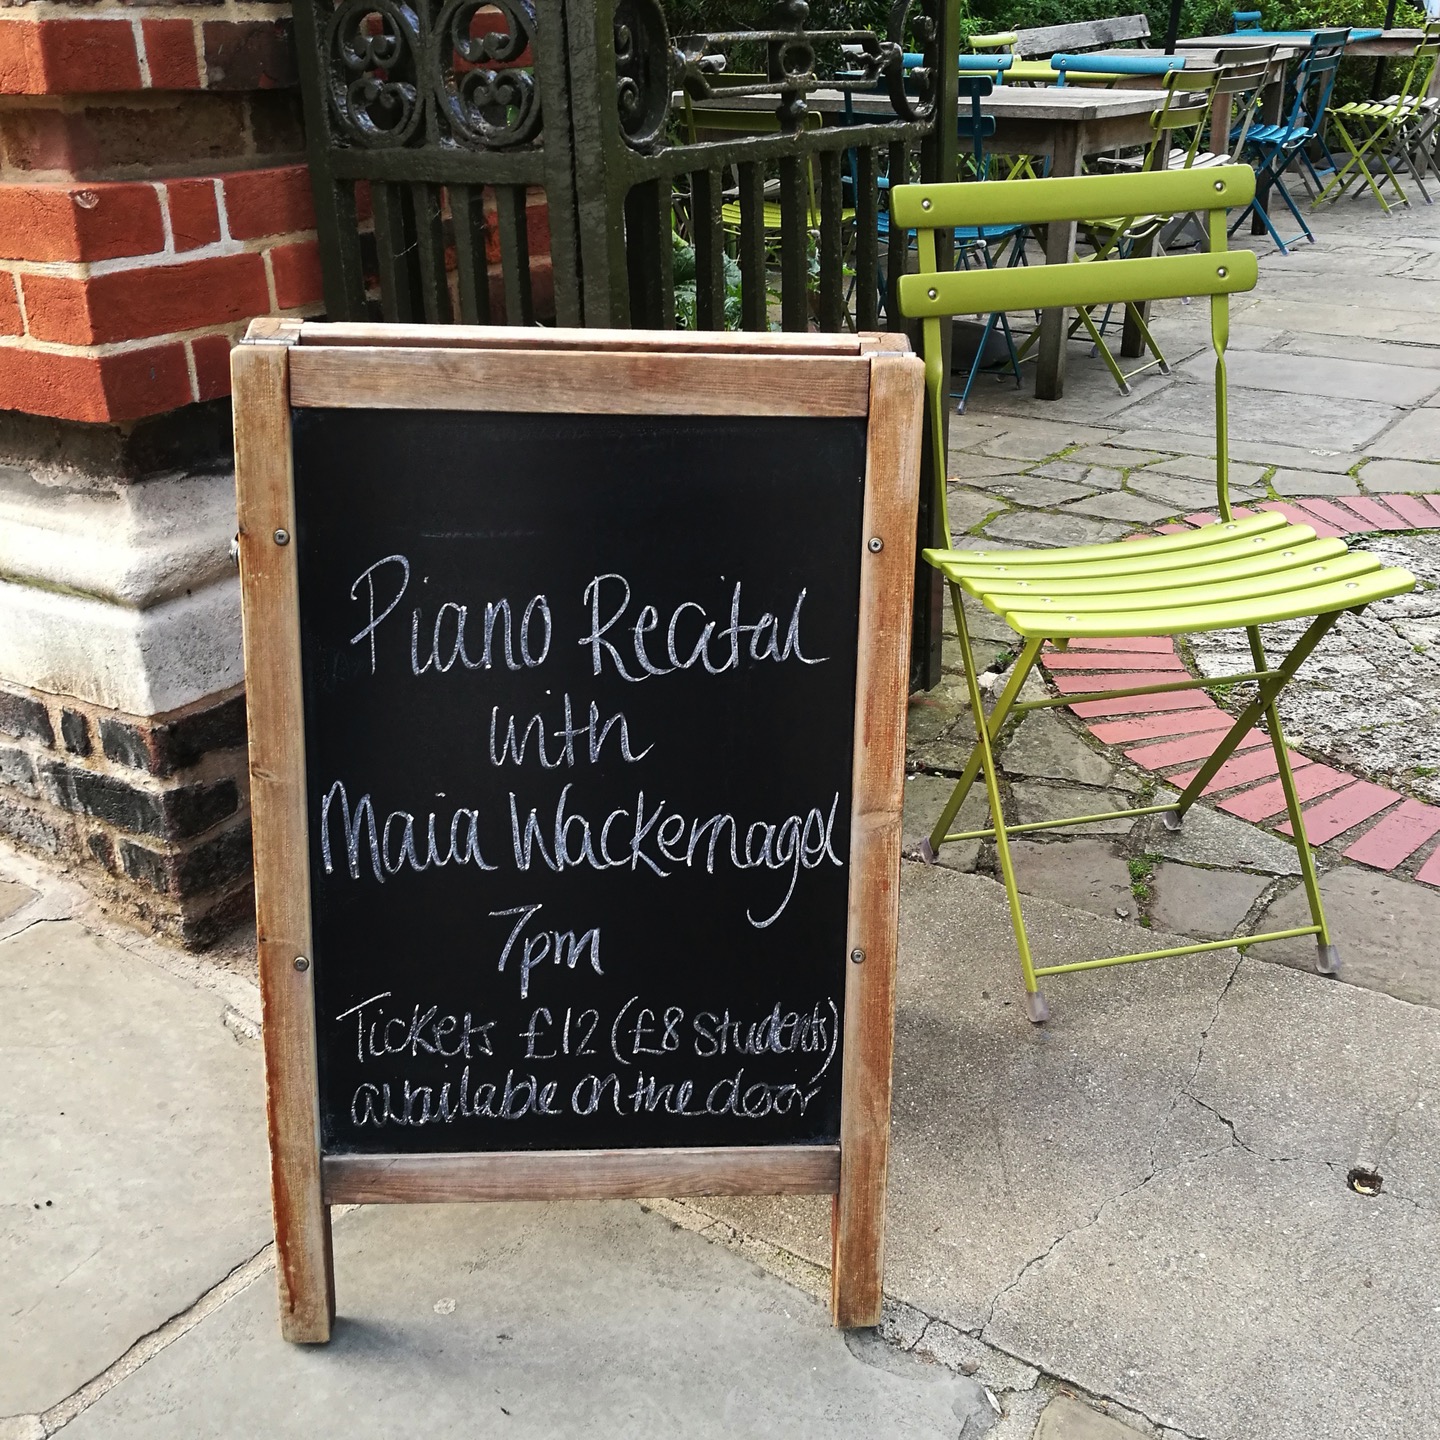 Piano Recital
with
Maia Wackernagel
7pm
Tickets £12 (£8 students)
available on the door